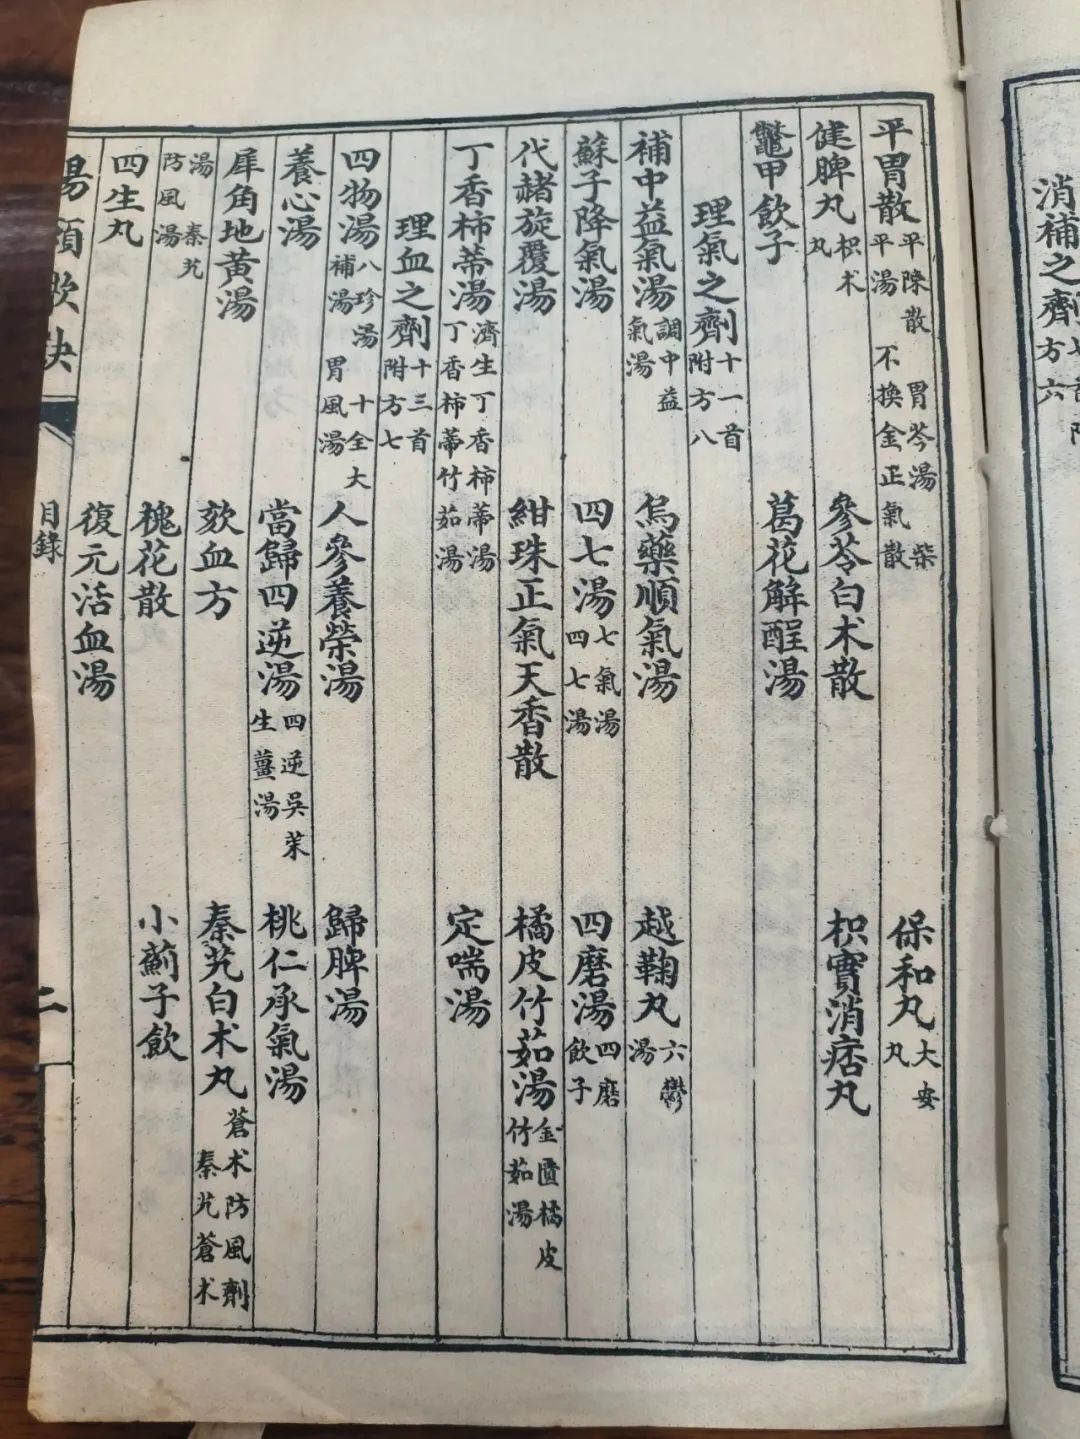 消補之劑
方六
平胃散平陳散 胃苓湯 柴平湯 不換金正氣散 保和丸大安丸
健脾丸枳术丸 參苓白术散 枳實消痞丸
鱉甲飲子 葛花解酲湯
理氣之劑十一首附方八
補中益氣湯調中益氣湯 烏藥順氣湯 越鞠丸六鬱湯
蘇子降氣湯 四七湯七氣湯四七湯 四磨湯四磨飲子
代赭旋覆湯 紺珠正氣天香散 橘皮竹茹湯金匱橘皮竹茹湯
丁香柿蒂湯濟生丁香柿蒂湯丁香柿蒂竹茹湯 定喘湯
理血之劑十三首附方七
四物湯八珍湯 十全大補湯 胃風湯 人參養榮湯 歸脾湯
養心湯 當歸四逆湯四逆吳茱生薑湯 桃仁承氣湯
犀角地黃湯 欬血方 秦艽白术丸蒼术防風劑秦艽蒼术
湯 秦艽防風湯 槐花散 小薊子飲
四生丸 復元活血湯
湯頭歌訣 目錄 二